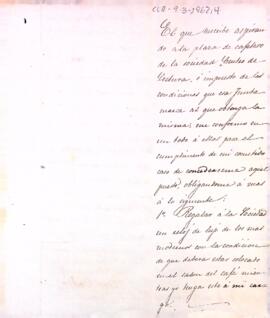 CCA-9-3-1967,4
El que suscribe aspiran
do a la plaza de cafetero
de la sociedad Centro de
Lectura, é impuesto de las
condiciones que esa Junta
marca al que obtenga la
misma; me conformo en
un todo á ellas para el
cumplimiento de mi cometido
caso de concederseme aquel
puesto, obligandome á mas
á lo siguiente:
1ª Regalar á la Sociedad
un reloj de lujo de los mas
modernos con la condicion
de que debera estar colocado
en el salon del café mien
tras yo haga este á mi car
go.